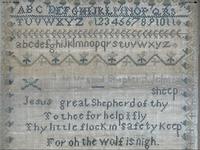 A B C D E F G H I J K L M N O P Q R S
T U V W X Y Z 1 2 3 4 5 6 7 8 9 10 11
a b c d e f g h i j k l m n o p q r s t u v w x y z
sheep
Jesus great Shepherd of thy
To thee for help I fly
Thy little flock in safety keep
For oh the wolf is nigh.